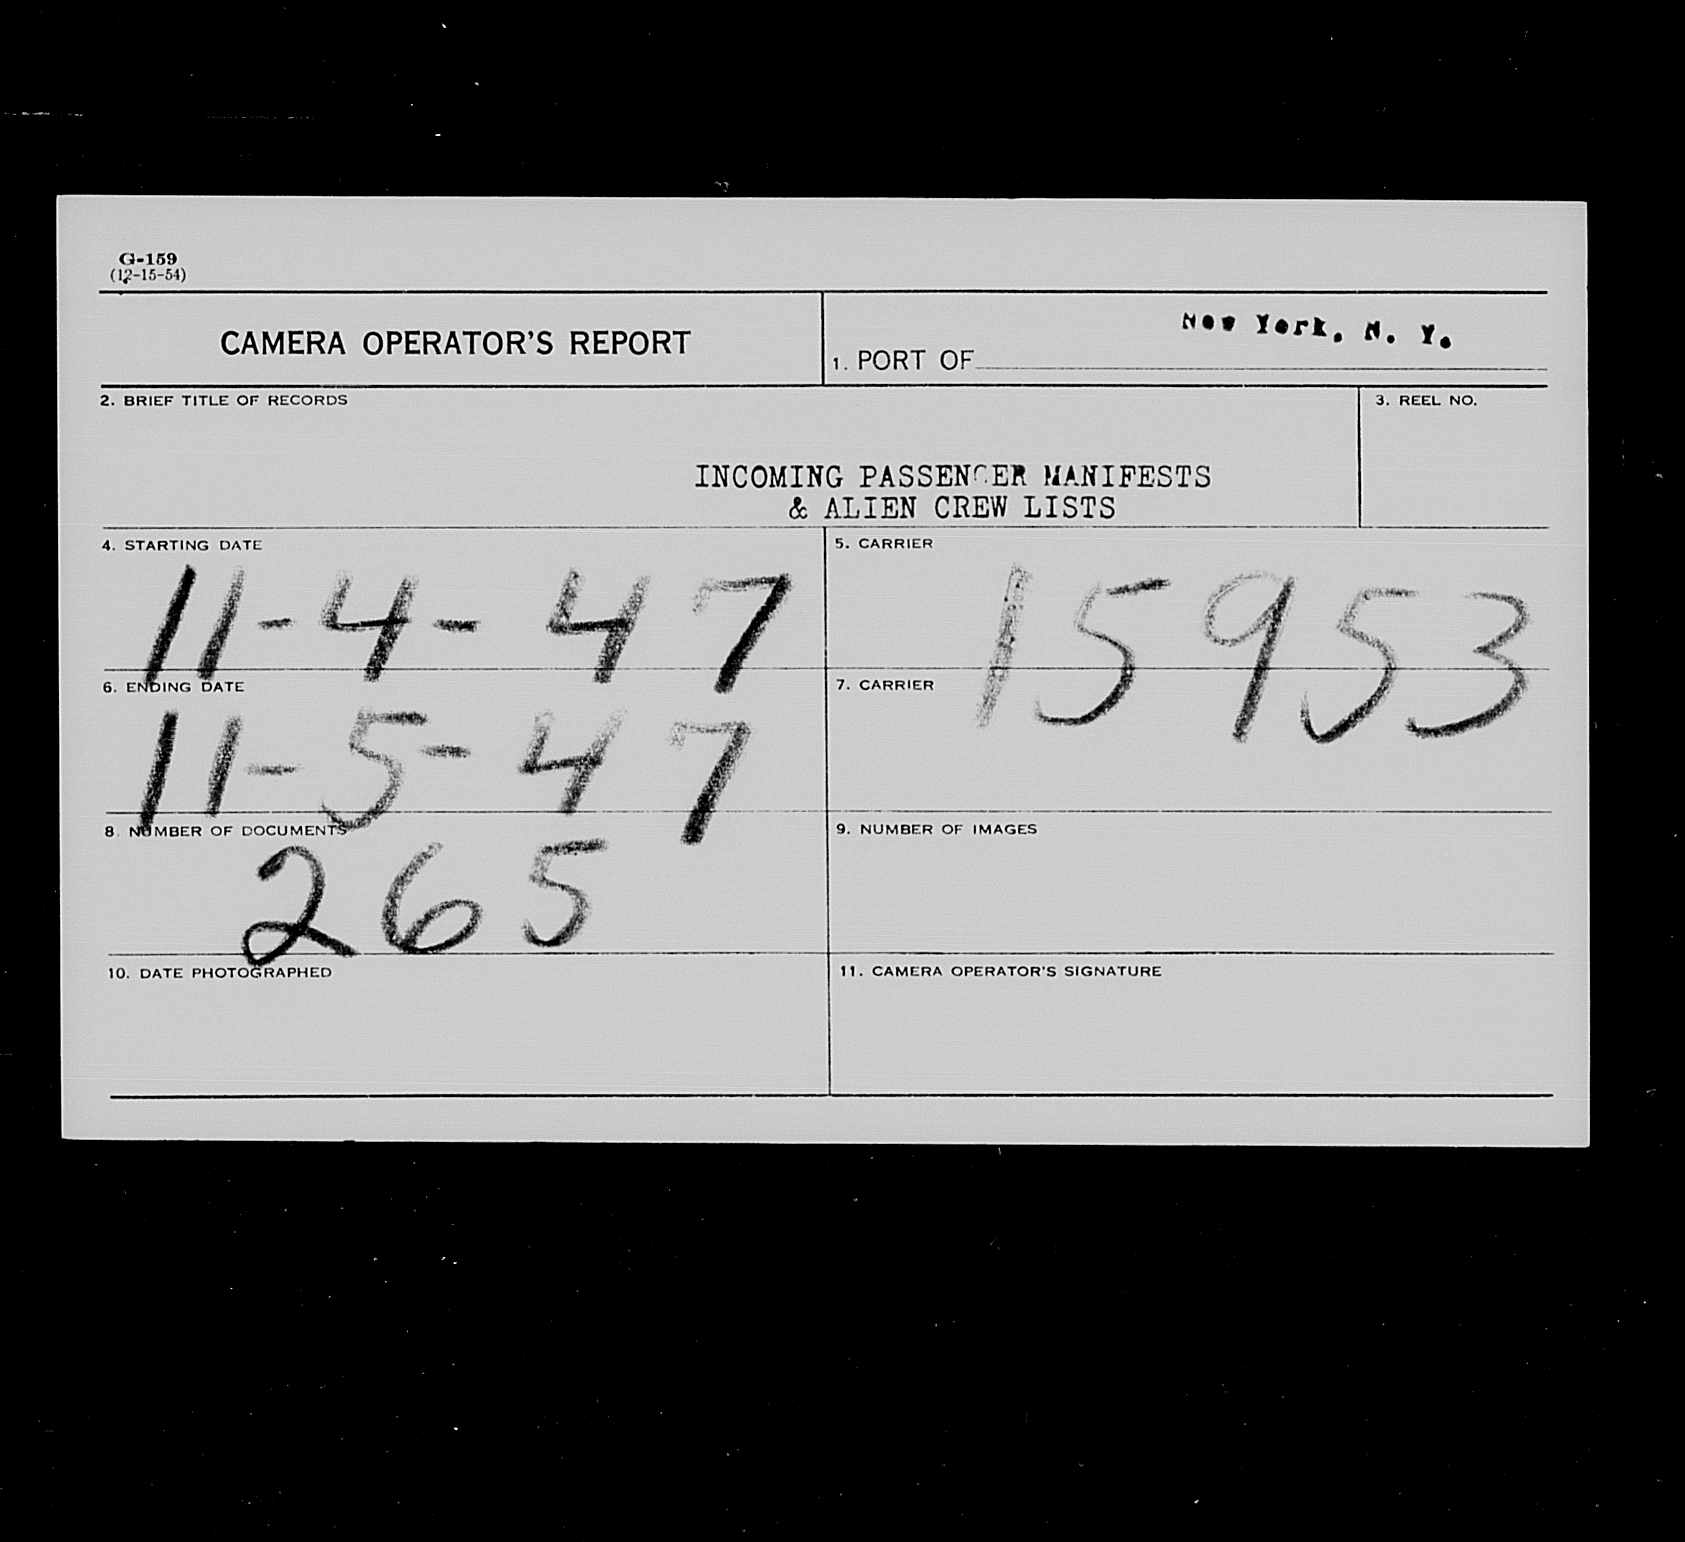 G-159
(12-15-54)
CAMERA OPERATOR'S REPORT
1. PORT OF New York, N. Y.
2. BRIEF TITLE OF RECORDS
3. REEL NO.
INCOMING PASSENGER MANIFESTS
& ALIEN CREW LISTS
4. STARTING DATE
11-4-47
5. CARRIER
15953
6. ENDING DATE
11-5-47
7. CARRIER
8. NUMBER OF DOCUMENTS
265
9. NUMBER OF IMAGES
10. DATE PHOTOGRAPHED
11. CAMERA OPERATOR'S SIGNATURE